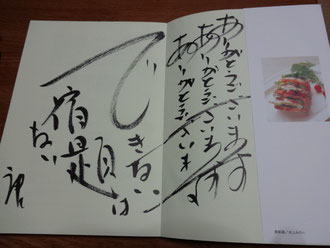 ありがとうございます
ありがとうございます
ありがとうございます
できない
宿題は
ない